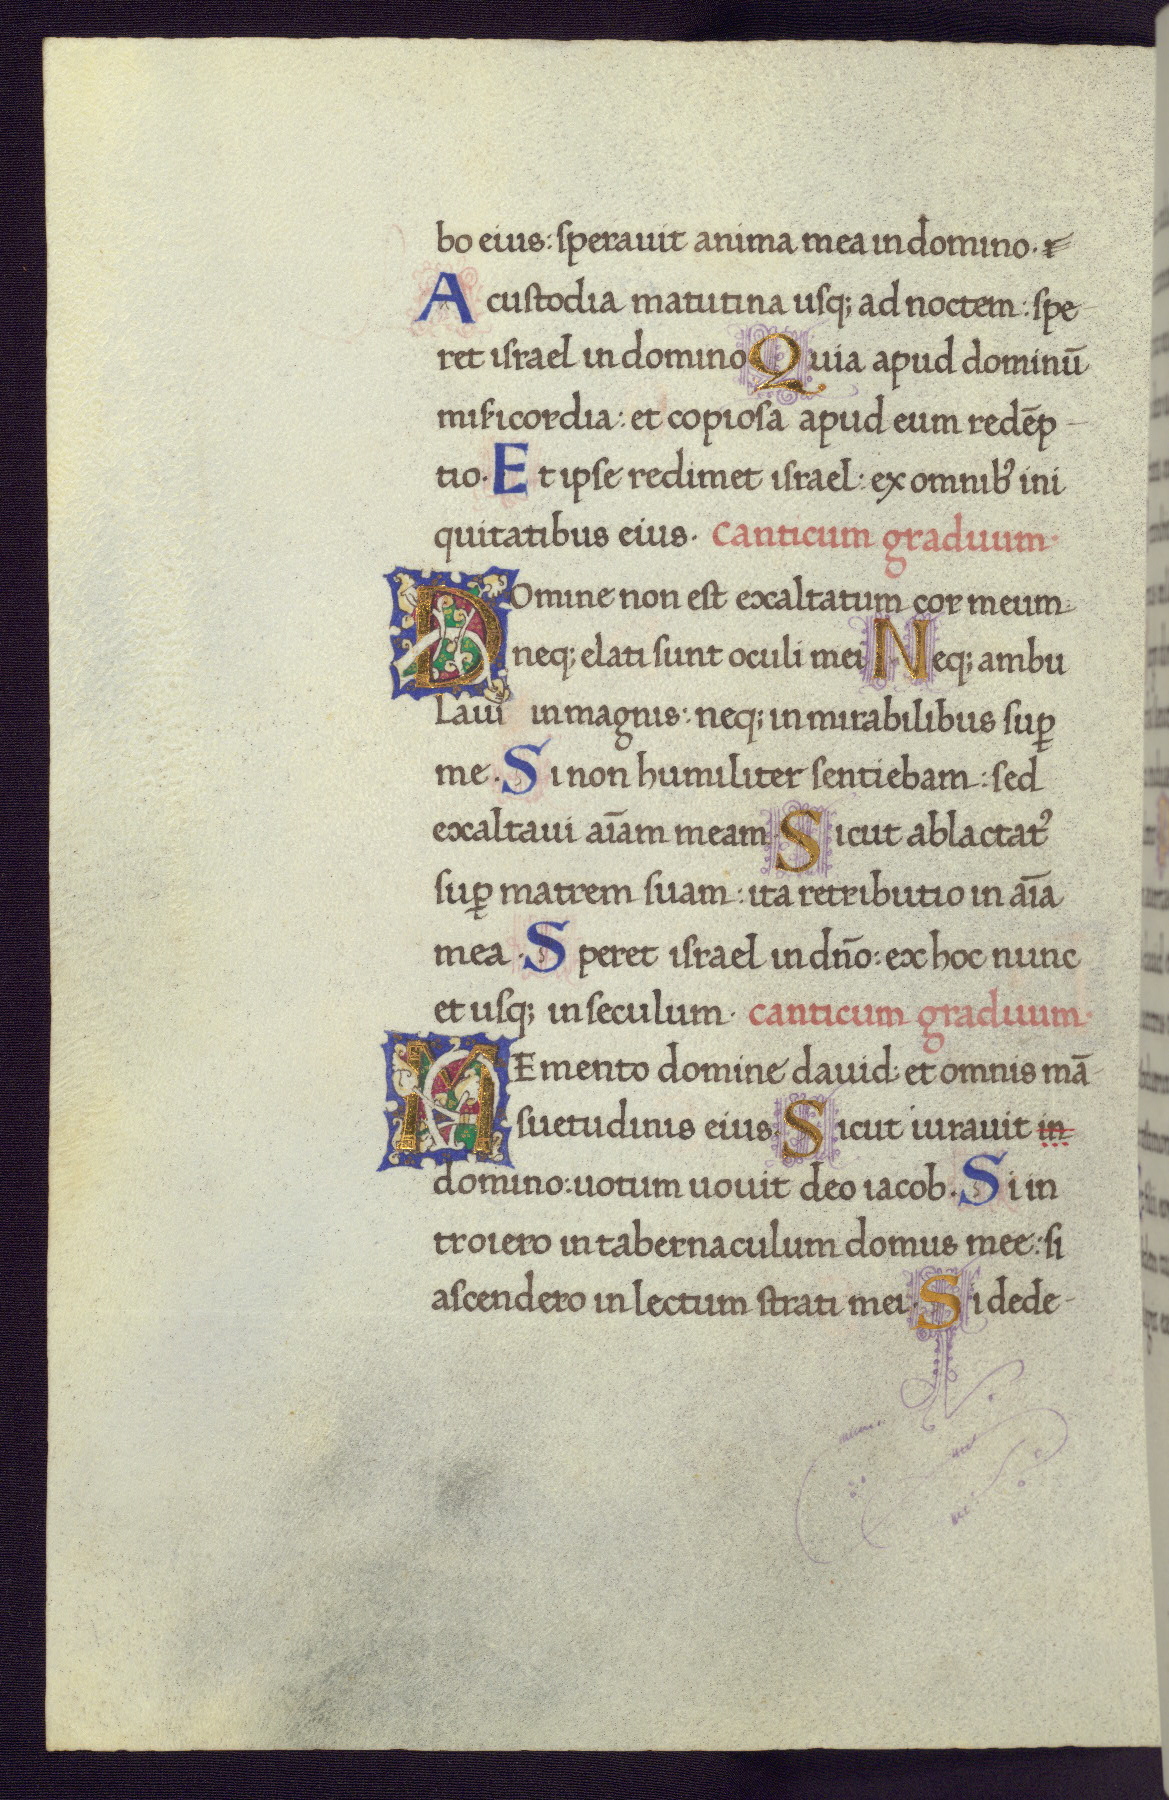 bo eius: sperauit anima mea in domino·
A custodia matutina usq; ad noctem: spe
ret israel in domino Quia apud dominū
mısicordia: et copiosa apud eum redēp
tio· Et ipse redimet israel: ex omnib' ini
quitatibus eius· Canticum graduum·
DOmine non est exaltatum cor meum
neq; elati sunt oculi mei Neq; ambu
Laui in magnis: neq; in mirabilibus suꝑ
me· Si non humiliter sentiebam: sed
exaltaui aīam meam Sicut ablactat'
suꝑ matrem suam: ita retributio in aīa
mea· Speret israel in dño: ex hoc nunc
et usq; in seculum· canticum graduum·
MEmento domine dauid: et omnis mā
suetudinis eius· Sicut iurauit in
domino: uotum uouit deo iacob· Si in
troiero in tabernaculum domus mee: si
ascendero in lectum strati mei· Si dede